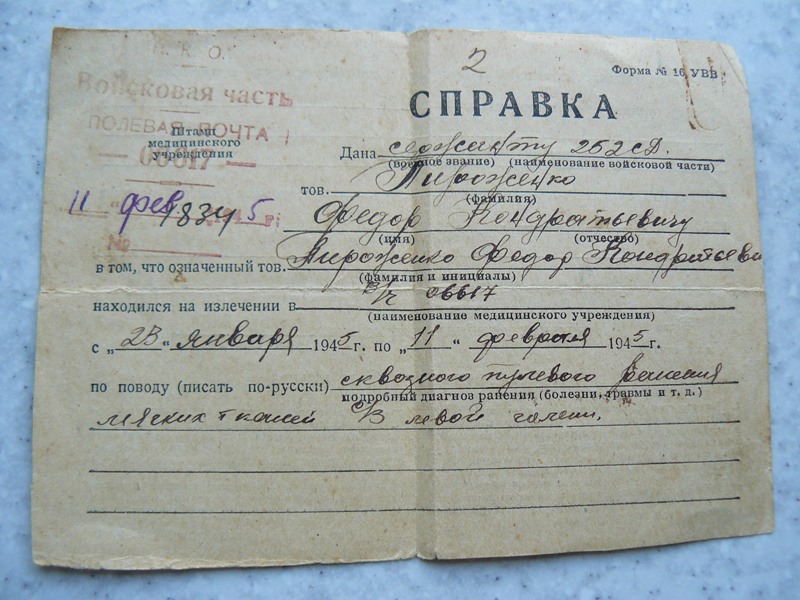 Н. К. О.
2
Форма № 16 УВВ
Войсковая часть
СПРАВКА
ПОЛЕВАЯ ПОЧТА
Штамп
медицинского
учреждения
— 06617 —
Дана сержанту 252 сд.
(военное звание) (наименование войсковой части)
тов. Пироженко
(фамилия)
11 " фев 1834 5 г.
Федор Кондратьевичу
(имя) (отчество)
№
в том, что означенный тов. Пироженко Федор Кондратьеви
(фамилия и инициалы)
находился на излечении в в/ч 06617
(наименование медицинского учреждения)
с „23" января 1945 г. по „11" февраля 1945 г.
по поводу (писать по-русски) сквозного пулевого ранения
подробный диагноз ранения (болезни, травмы и т. д.)
мягких тканей в левой голени.